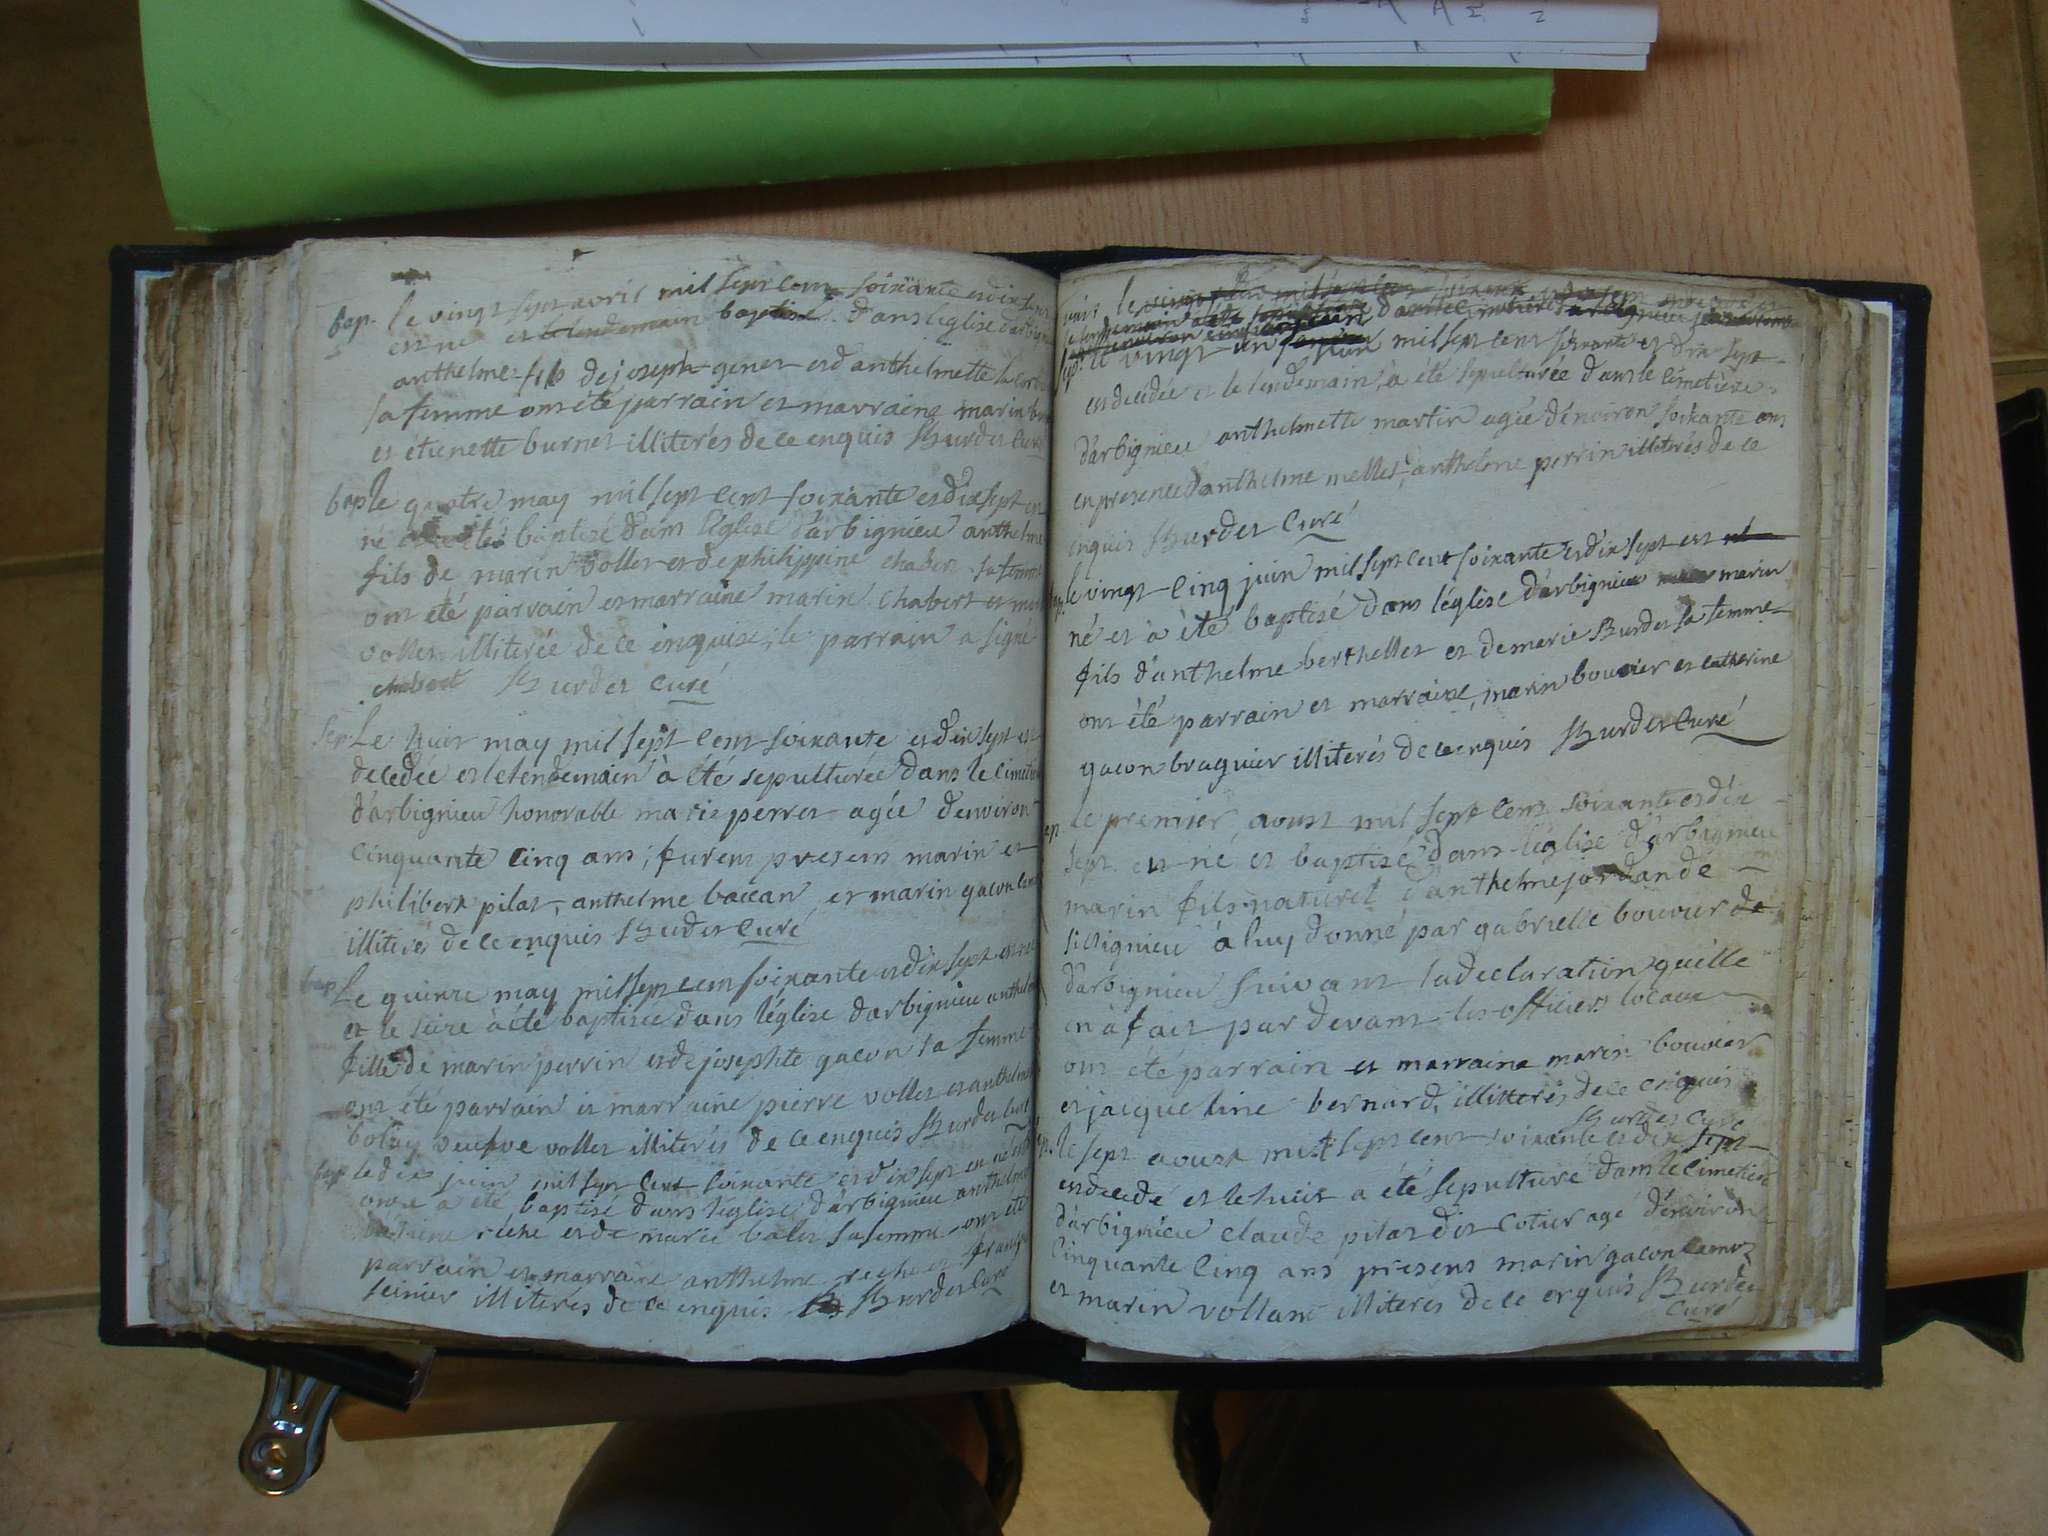 bap. le vingt sept avril mil sept cent soixante et dix sept
est né et le lendemain baptisé dans l'église d'arbignieu
anthelme fils de joseph genet et d'anthelmette
sa femme ont été parrain et marraine marin
et étienette burnet illiterés de ce enquis Burdet Curé
bap le quatre may mil sept cent soixante et dix sept est
né et a été baptisé dans l'église d'arbignieu anthelme
fils de marin vollet et de philippine chabert sa femme
ont été parrain et marraine marin chabert et
vollet illiterée de ce enquise, le parrain a signé
chabert Burdet curé
Sep. Le huit may mil sept cent soixante et dix sept est
decedée et le lendemain à été sepulturée dans le cimetiere
d'arbignieu honorable marie perret agée d'environ
cinquante cinq ans; furent presens marin et
philibert pilat, anthelme baccan et marin gacon
illiterés de ce enquis Burdet Curé
bap Le quinze may mil sept cent soixante et dix sept est née
et le seize à été baptisée dans l'église d'arbignieu anthelme
fille de marin perrin et de josephte gacon sa femme
ont été parrain et marraine pierre vollet et anthelme
bolay veufve vollet illiterés de ce enquis Burdet curé
bap le dix juin mil sept cent soixante et dix sept est né et le
onze a été baptisé dans l'église d'arbignieu anthelme
reche et de marie balet sa femme ont été
parrain et marraine anthelme reche et
seinier illiterés de ce enquis Burdet Curé
Sep. le vingt un juin mil sept cent soixante et dix sept
est decédée et le lendemain à été sepulturée dans le cimetiere
d'arbignieu anthelmette martin agée d'environ soixante ans
en presence d'anthelme mellet, anthelme perrin illiterés de ce
enquis Burdet Curé
le vingt cinq juin mil sept cent soixante et dix sept est
né et à été baptisé dans l'église d'arbignieu marin
fils d'anthelme berthellet et de marie Burdet sa femme
ont été parrain et marraine, marin bouvier et catherine
gacon braguier illiterés de ce enquis Burdet Curé
le premier aoust mil sept cent soixante et dix
sept est né et baptisé dans l'église d'arbignieu
marin fils naturel d'anthelme jordan de
à luy donné par gabrielle bouvier de
d'arbignieu suivant la declaration qu'elle
en à fait par devant les officiers locaux
ont été parrain et marraine marin bouvier
et jacqueline bernard, illitterés de ce enquis
Burdet Curé
le sept aoust mil sept cent soixante et dix sept
est decedé et le huit a été sepulturé dans le cimetiere
d'arbignieu claude pilat dit cotier agé d'environ
cinquante cinq ans presens marin gacon
et marin vollant illiterés de ce enquis Burdet
Curé